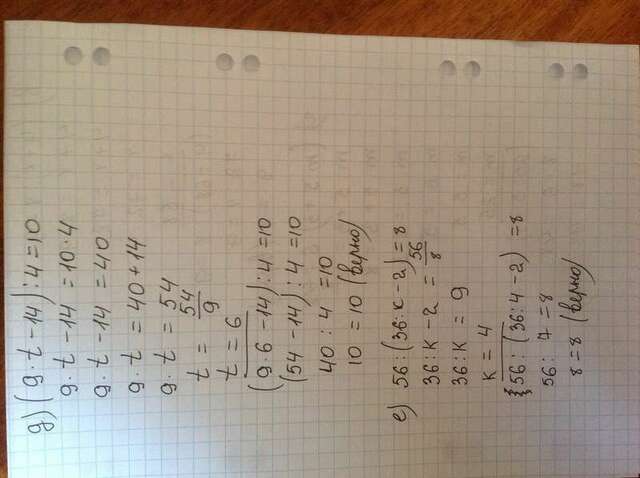 д) (9·t-14):4=10
9·t-14=10·4
9·t-14=40
9·t=40+14
9·t=54
t=54/9
t=6
(9·6-14):4=10
(54-14):4=10
40:4=10
10=10 (верно)
е) 56:(36:к-2)=8
36:к-2=56/8
36:к=9
к=4
56:(36:4-2)=8
56:7=8
8=8 (верно)